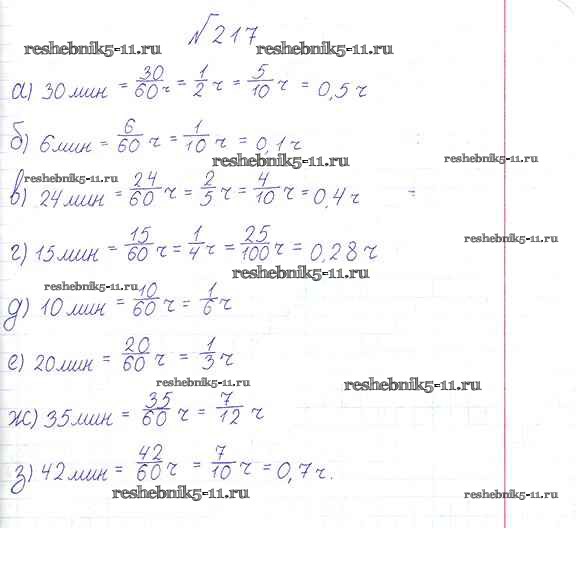 №217
reshebnik5-11.ru reshebnik5-11.ru
а) 30 мин = 30/60 ч = 1/2 ч = 5/10 ч = 0,5 ч
б) 6 мин = 6/60 ч = 1/10 ч = 0,1 ч
reshebnik5-11.ru reshebnik5-11.ru
reshebnik5-11.ru
в) 24 мин = 24/60 ч = 2/5 ч = 4/10 ч = 0,4 ч =
reshebnik5-11.ru
г) 15 мин = 15/60 ч = 1/4 ч = 25/100 ч = 0,28 ч
reshebnik5-11.ru
reshebnik5-11.ru
д) 10 мин = 10/60 ч = 1/6 ч
е) 20 мин = 20/60 ч = 1/3 ч
reshebnik5-11.ru reshebnik5-11.ru
ж) 35 мин = 35/60 ч = 7/12 ч
з) 42 мин = 42/60 ч = 7/10 ч = 0,7 ч.
reshebnik5-11.ru reshebnik5-11.ru